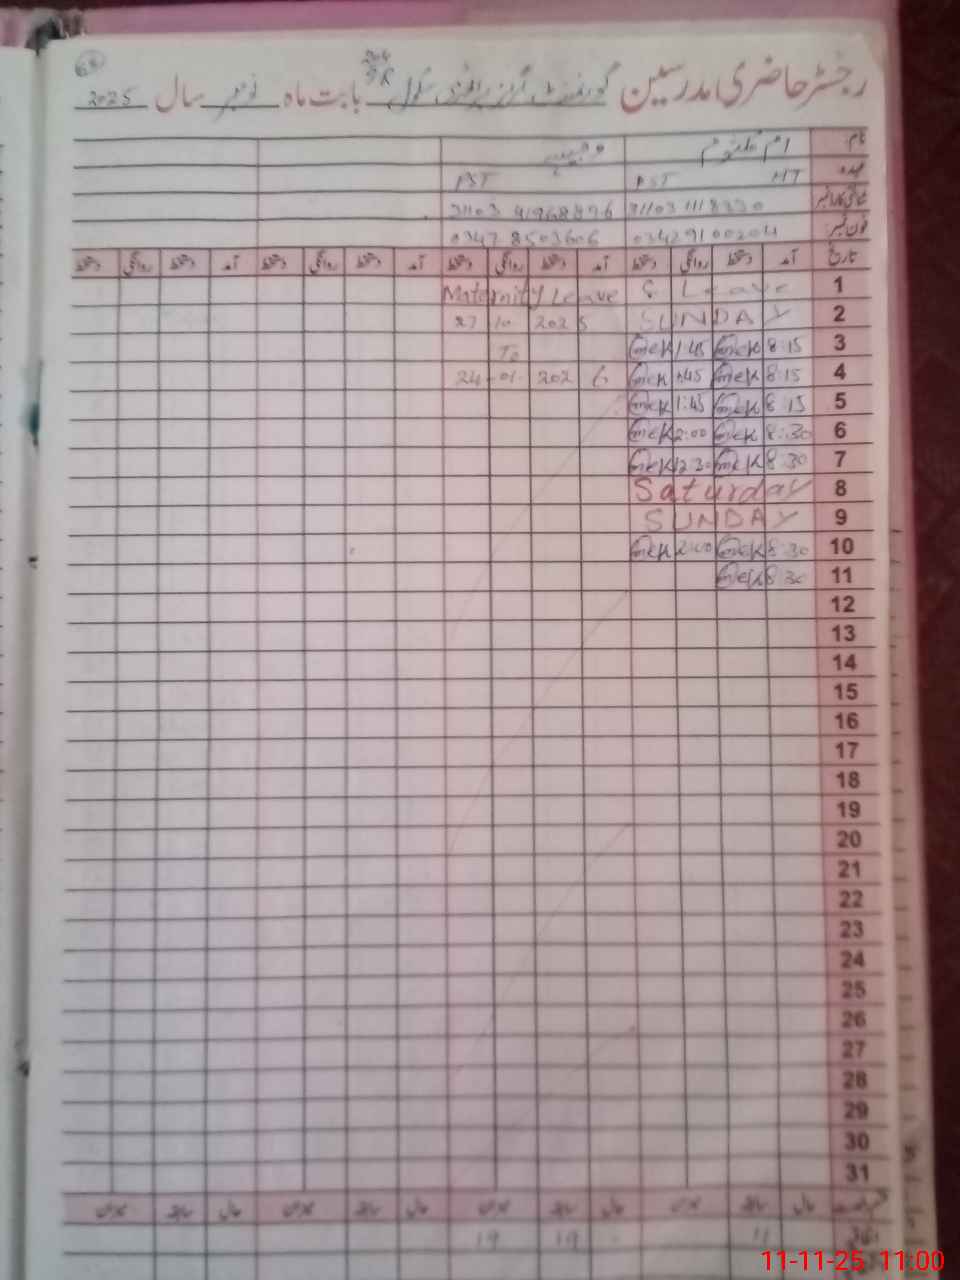 68
رجسٹر حاضری مدرسین گورنمنٹ گرلز پرائمری سکول بابت ماہ نومبر سال 2025
نام ام کلثوم
عہدہ HT PST PST
شناختی کارڈ نمبر
فون نمبر 03429100204 03478503606
تاریخ آمد دستخط روانگی دستخط آمد دستخط روانگی دستخط آمد دستخط روانگی دستخط آمد دستخط روانگی دستخط
1 C Leave Maternity Leave
2 SUNDAY 27 10 2025
3 8:15 1:45 To
4 8:15 1:45 24-01-2026
5 8:15 1:45
6 8:30 2:00
7 8:30 12:30
8 Saturday
9 SUNDAY
10 8:30 2:00
11 8:30
12
13
14
15
16
17
18
19
20
21
22
23
24
25
26
27
28
29
30
31
حال سابقہ میزان حال سابقہ میزان حال سابقہ میزان حال سابقہ میزان
11 - 19 19
11-11-25 11:00